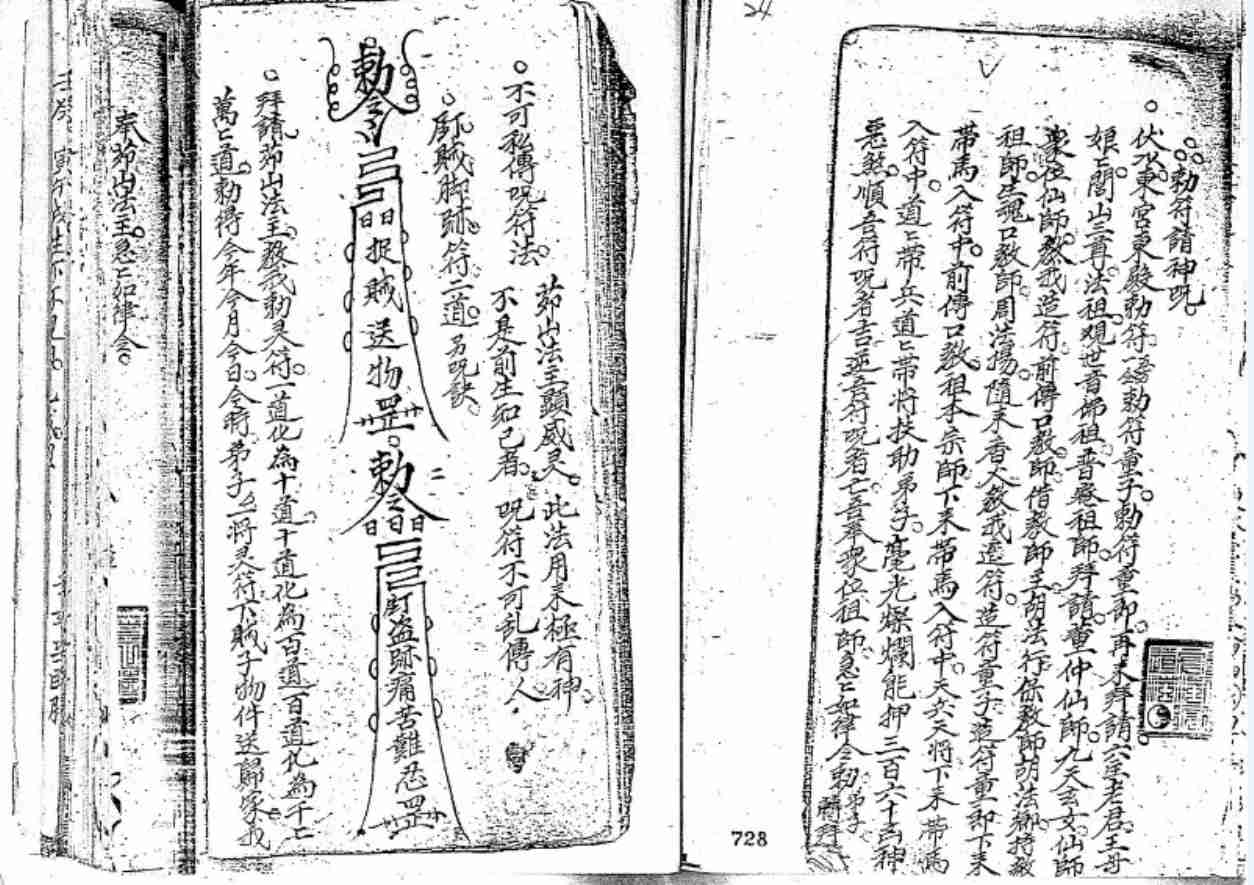 24
勅符請神咒。
伏以東宮東殿勅符勅符童子。勅符童郎。再來拜請六壬老君。王母
娘〻閭山三尊法祖。观世音佛祖。普庵祖師。拜請董仲仙師。九天玄女仙師
衆位仙師。教我造符。前傳口教師。偕教師主。胡法行。保教師胡法衛。持教
祖師。生魂口教師。周法揚。隨來香火教我造符。造符童子造符童郎下來
帶馬入符中。前傳口教。祖本宗師下來帶馬入符中。天兵天將下來帶馬
入符中。道〻帶兵道〻帶将扶助弟子。毫光燦爛能押三百六十凶神
惡煞。順吾符咒者吉逆吾符咒者亡。吾奉衆位祖師。急〻如律令勅
弟子
728
不可私傳咒符法。
茆山法主顯威灵。此法用来極有神。
不是前生知己者。咒符不可乱傳人。
釘賊脚跡符二道。另咒訣。
勅令
捉賊送物罡
二
勅令
釘盗跡痛苦難忍罡
拜請茆山法主。教我勅灵符。一道化為十道。十道化為百道。百道化為千〻
萬〻道。勅得今年今月今日今時弟子厶一将灵符下。賊子物件送歸家。我
奉茆山法主。急〻如律令。